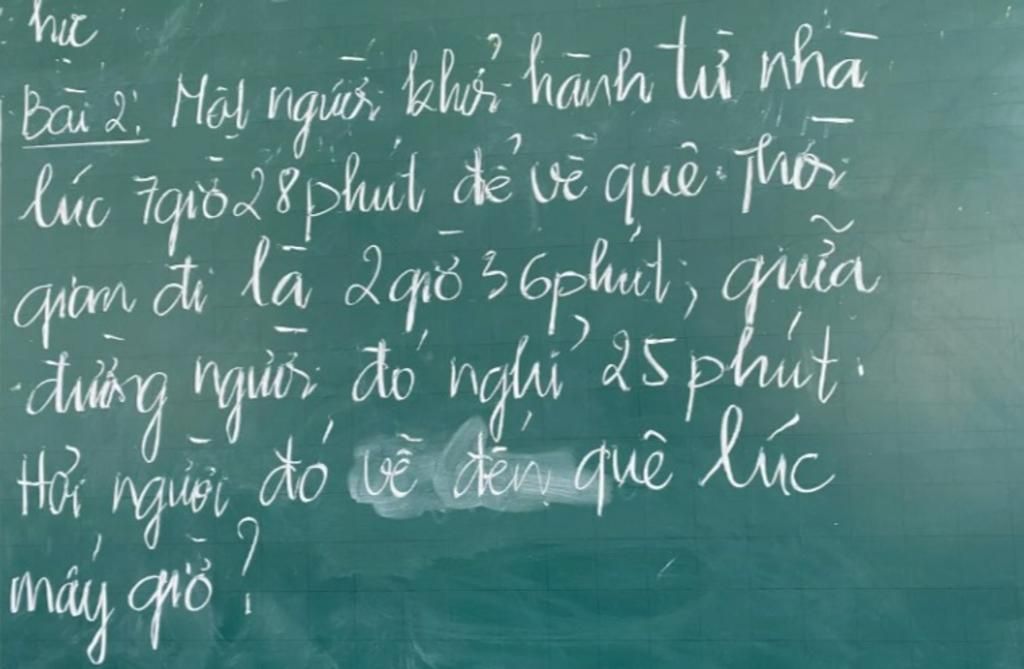 học
Bài 2: Một người khởi hành từ nhà
lúc 7giờ 28 phút để về quê. Thời
gian đi là 2giờ 36phút, giữa
đường người đó nghỉ 25 phút.
Hỏi người đó về đến quê lúc
mấy giờ?